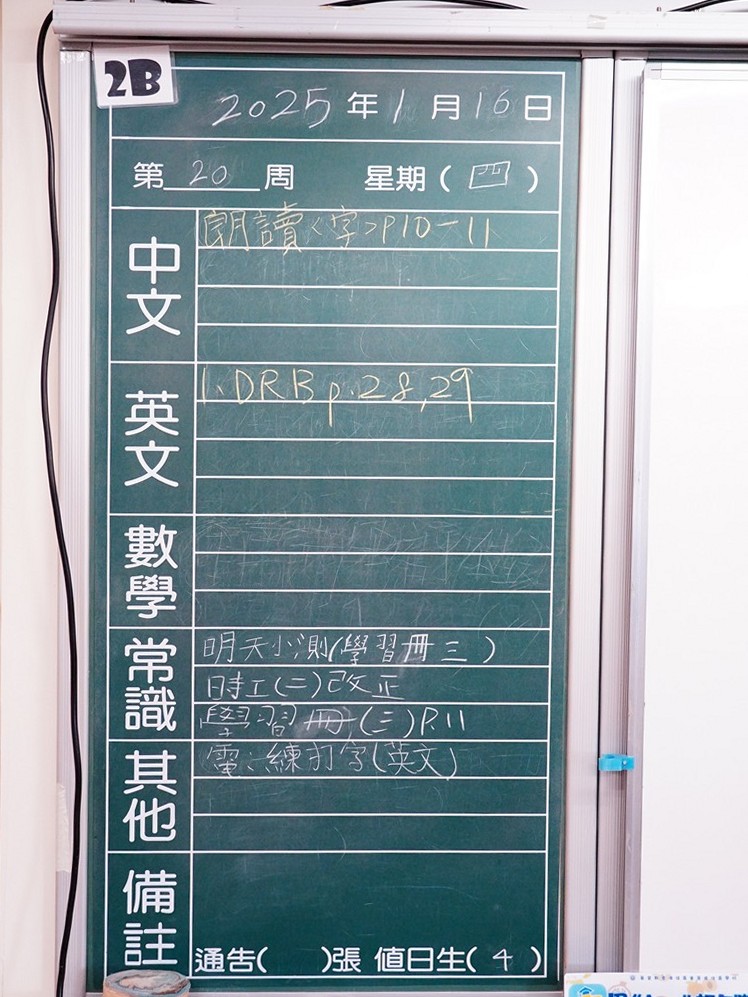 2B
2025年1月16日
第20周 星期(四)
中文
朗讀<字>P10-11
英文
1. DRB p.28,29
數學
常識
明天小測(學習冊三)
時工(二)改正
學習冊(三)P.11
其他
電:練打字(英文)
備註
通告( )張 值日生(4)